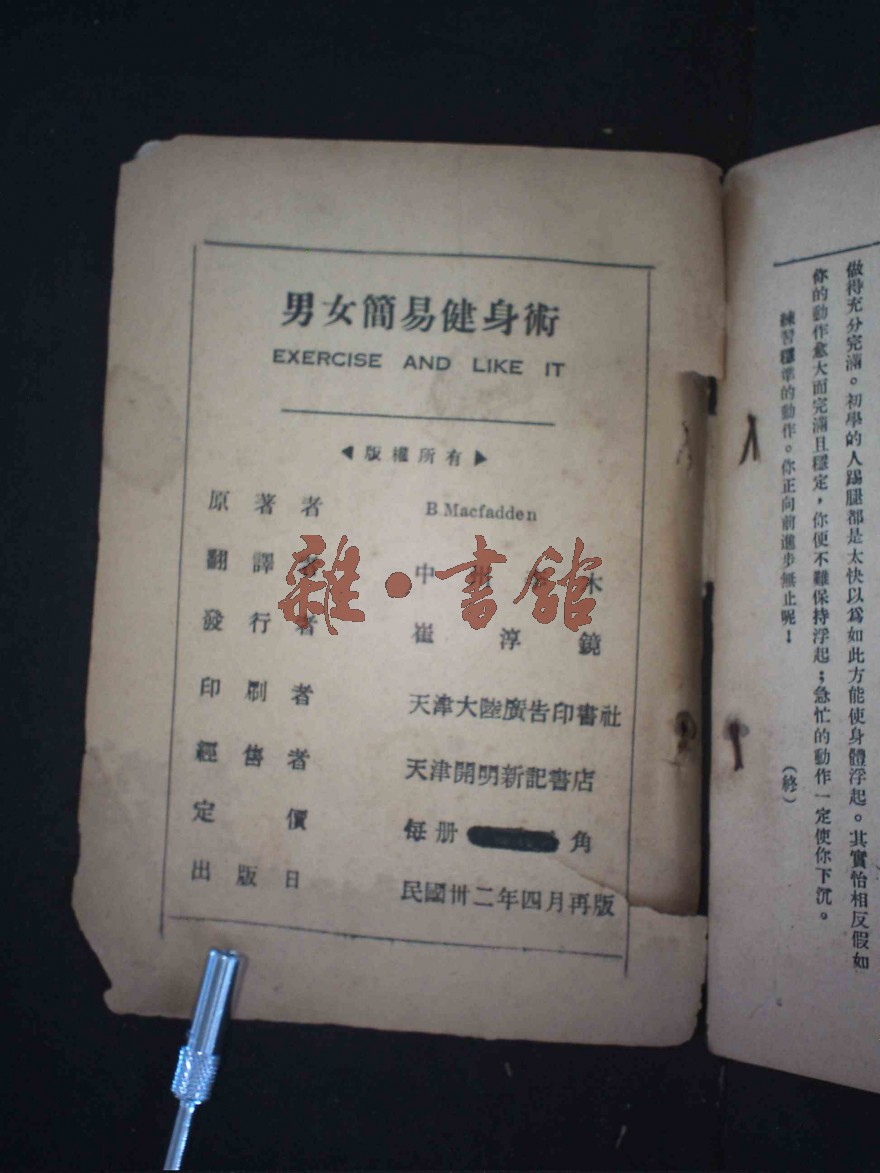 男女簡易健身術
EXERCISE AND LIKE IT
◀版權所有▶
原著者 B. Macfadden
翻譯者 中 木
發行者 崔淳鏡
印刷者 天津大陸廣告印書社
經售者 天津開明新記書店
定價 每册 角
出版日 民國卅二年四月再版
雜·書館
做得充分完滿。初學的人踢腿都是太快以爲如此方能使身體浮起。其實恰相反假如
你的動作愈大而完滿且穩定，你便不難保持浮起；急忙的動作一定使你下沉。
練習穩準的動作。你正向前進步無止呢！
（終）